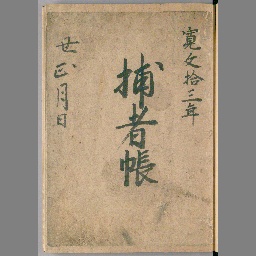 寛文拾三年
捕者帳
世正月日